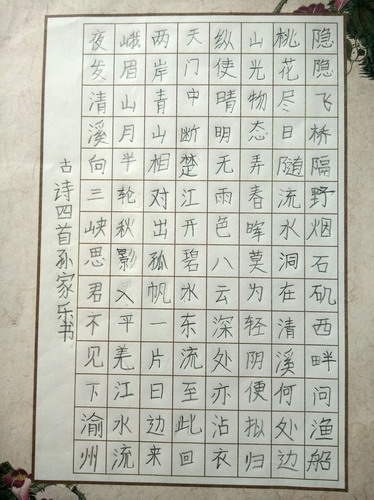 隐隐飞桥隔野烟石矶西畔问渔船
桃花尽日随流水洞在清溪何处边
山光物态弄春晖莫为轻阴便拟归
纵使晴明无雨色八云深处亦沾衣
天门中断楚江开碧水东流至此回
两岸青山相对出孤帆一片日边来
峨眉山月半轮秋影入平羌江水流
夜发清溪向三峡思君不见下渝州
古诗四首孙家乐书